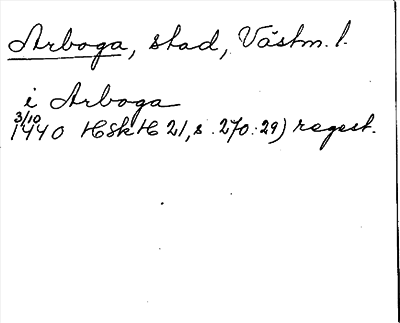 Arboga, stad, Västm. l.
i Arboga
3/10
1440 HSkH 21, s. 270:29) regest.